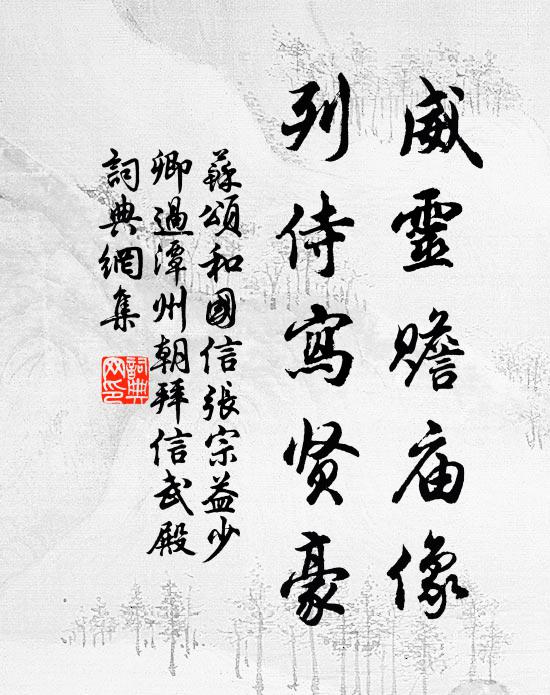 威靈瞻庙像
列侍寫贤豪
蘇頌和國信張宗益少
卿過潭州朝拜信武殿
詞典網集
詞典
网印